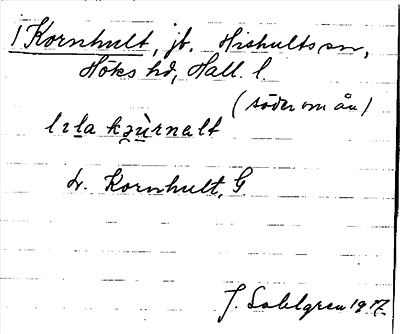 1 Kornhult, jb. Hishults sn,
Höks hd, Hall. l.
(söder om ån)
lɪla kʒùrnalt
L. Kornhult, G.
J. Sahlgren 1917